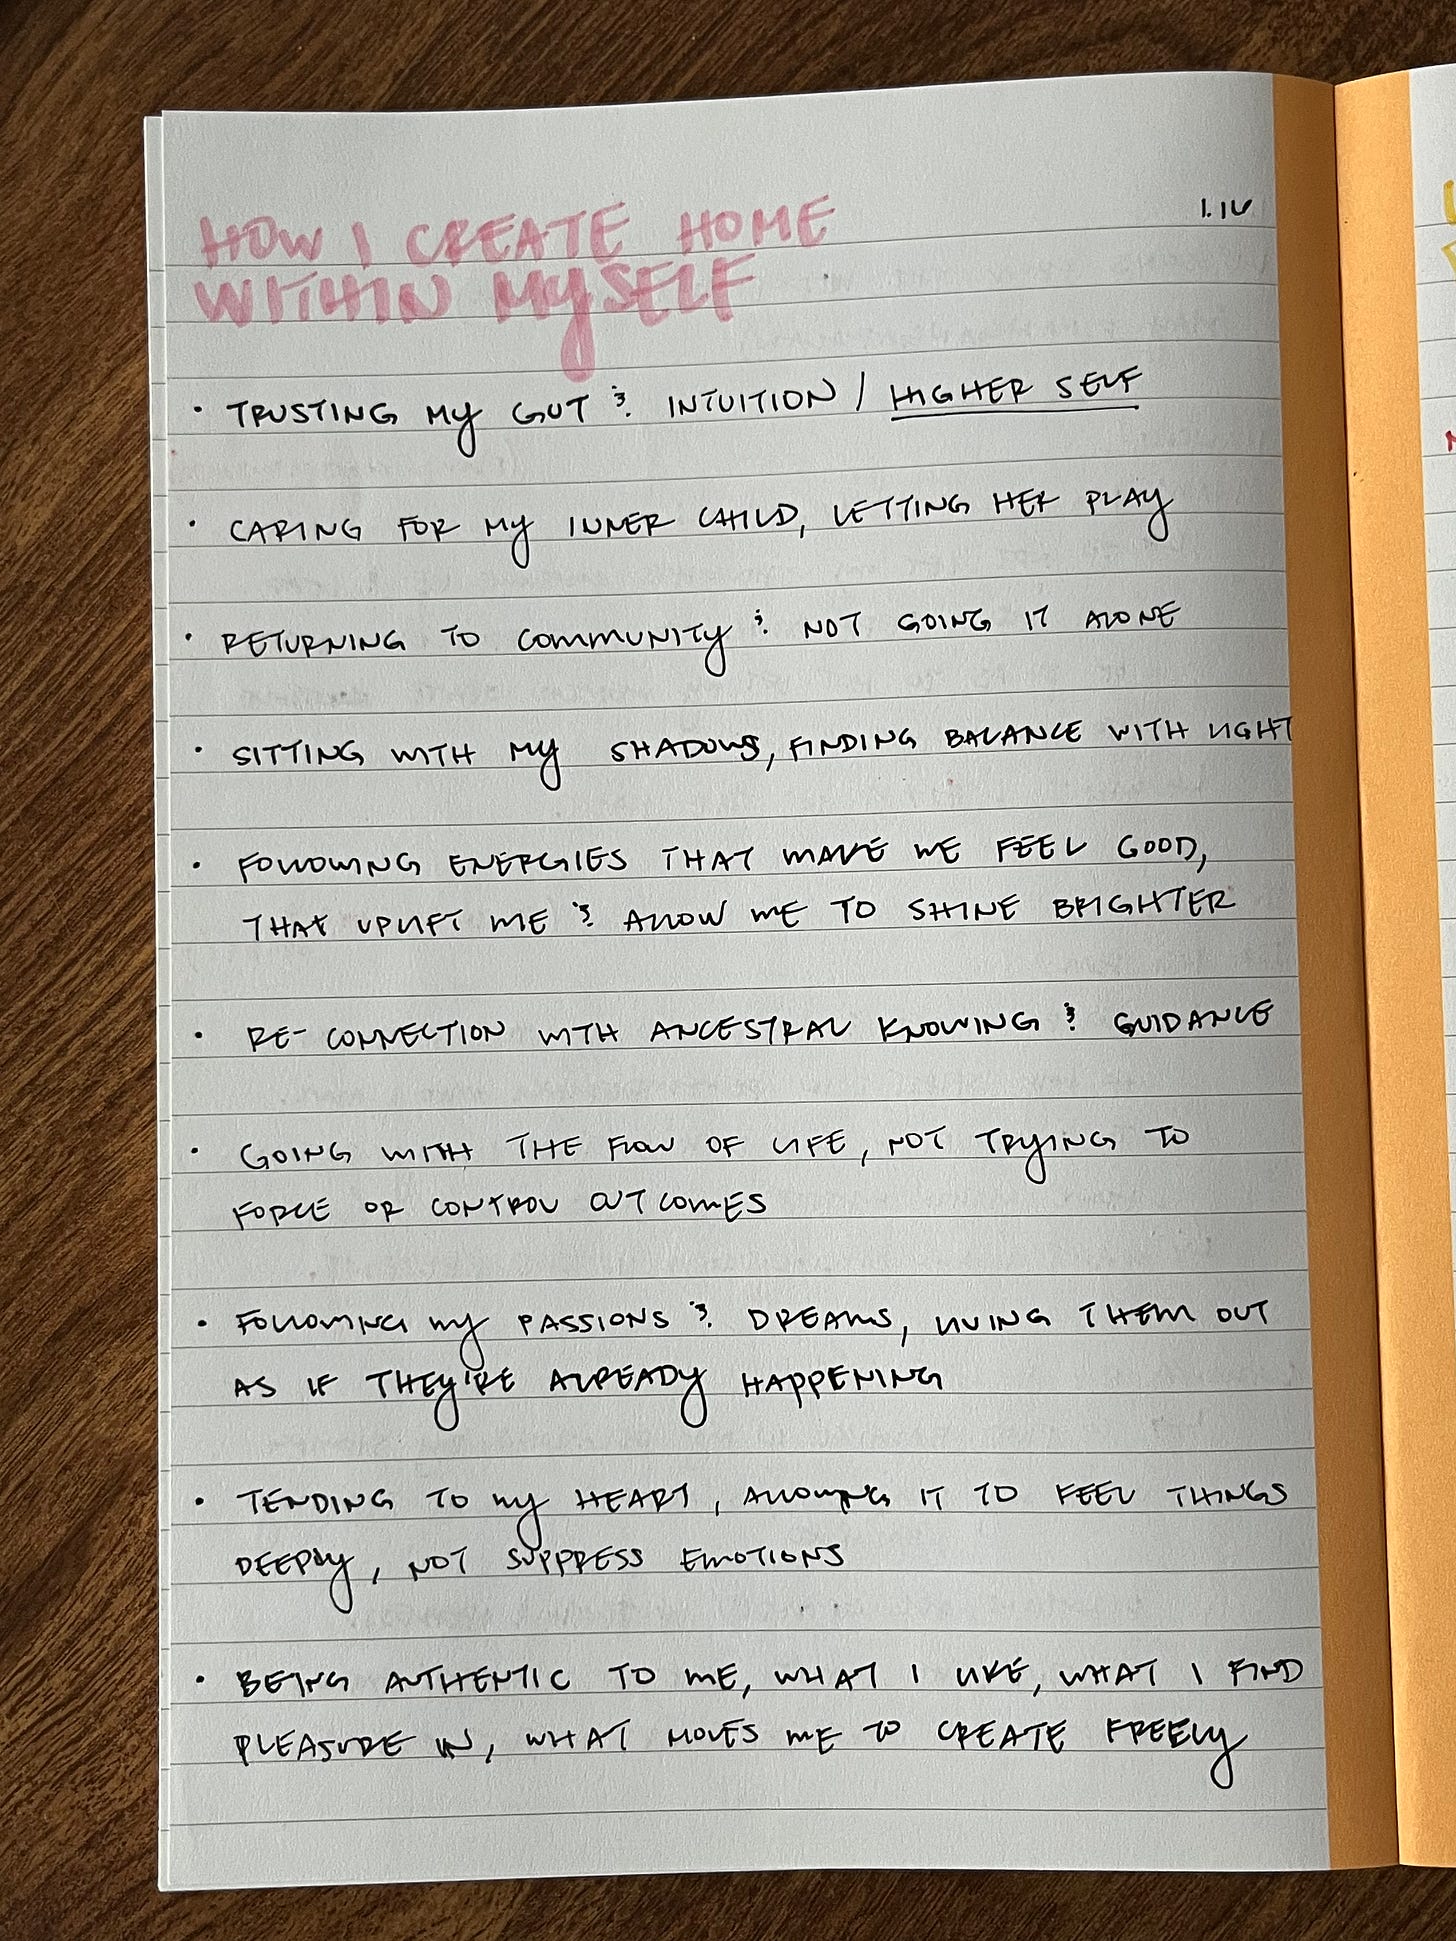 1.16
HOW I CREATE HOME
WITHIN MySELF
• TRUSTING My GUT & INTUITION / HIGHER SELF
• CARING FOR My INNER CHILD, LETTING HER PLAy
• RETURNING TO COMMUNITy & NOT GOING IT ALONE
• SITTING WITH My SHADOWS, FINDING BALANCE WITH LIGHT
• FOLLOWING ENERGIES THAT MAKE ME FEEL GOOD,
THAT UPLIFT ME & ALLOW ME TO SHINE BRIGHTER
• RE-CONNECTION WITH ANCESTRAL KNOWING & GUIDANCE
• GOING WITH THE FLOW OF LIFE, NOT TRyING TO
FORCE OR CONTROL OUTCOMES
• FOLLOWING My PASSIONS & DREAMS, LIVING THEM OUT
AS IF THEy'RE ALREADy HAPPENING
• TENDING TO My HEART, ALLOWING IT TO FEEL THINGS
DEEPLy, NOT SUPPRESS EMOTIONS
• BEING AUTHENTIC TO ME, WHAT I LIKE, WHAT I FIND
PLEASURE IN, WHAT MOVES ME TO CREATE FREELy